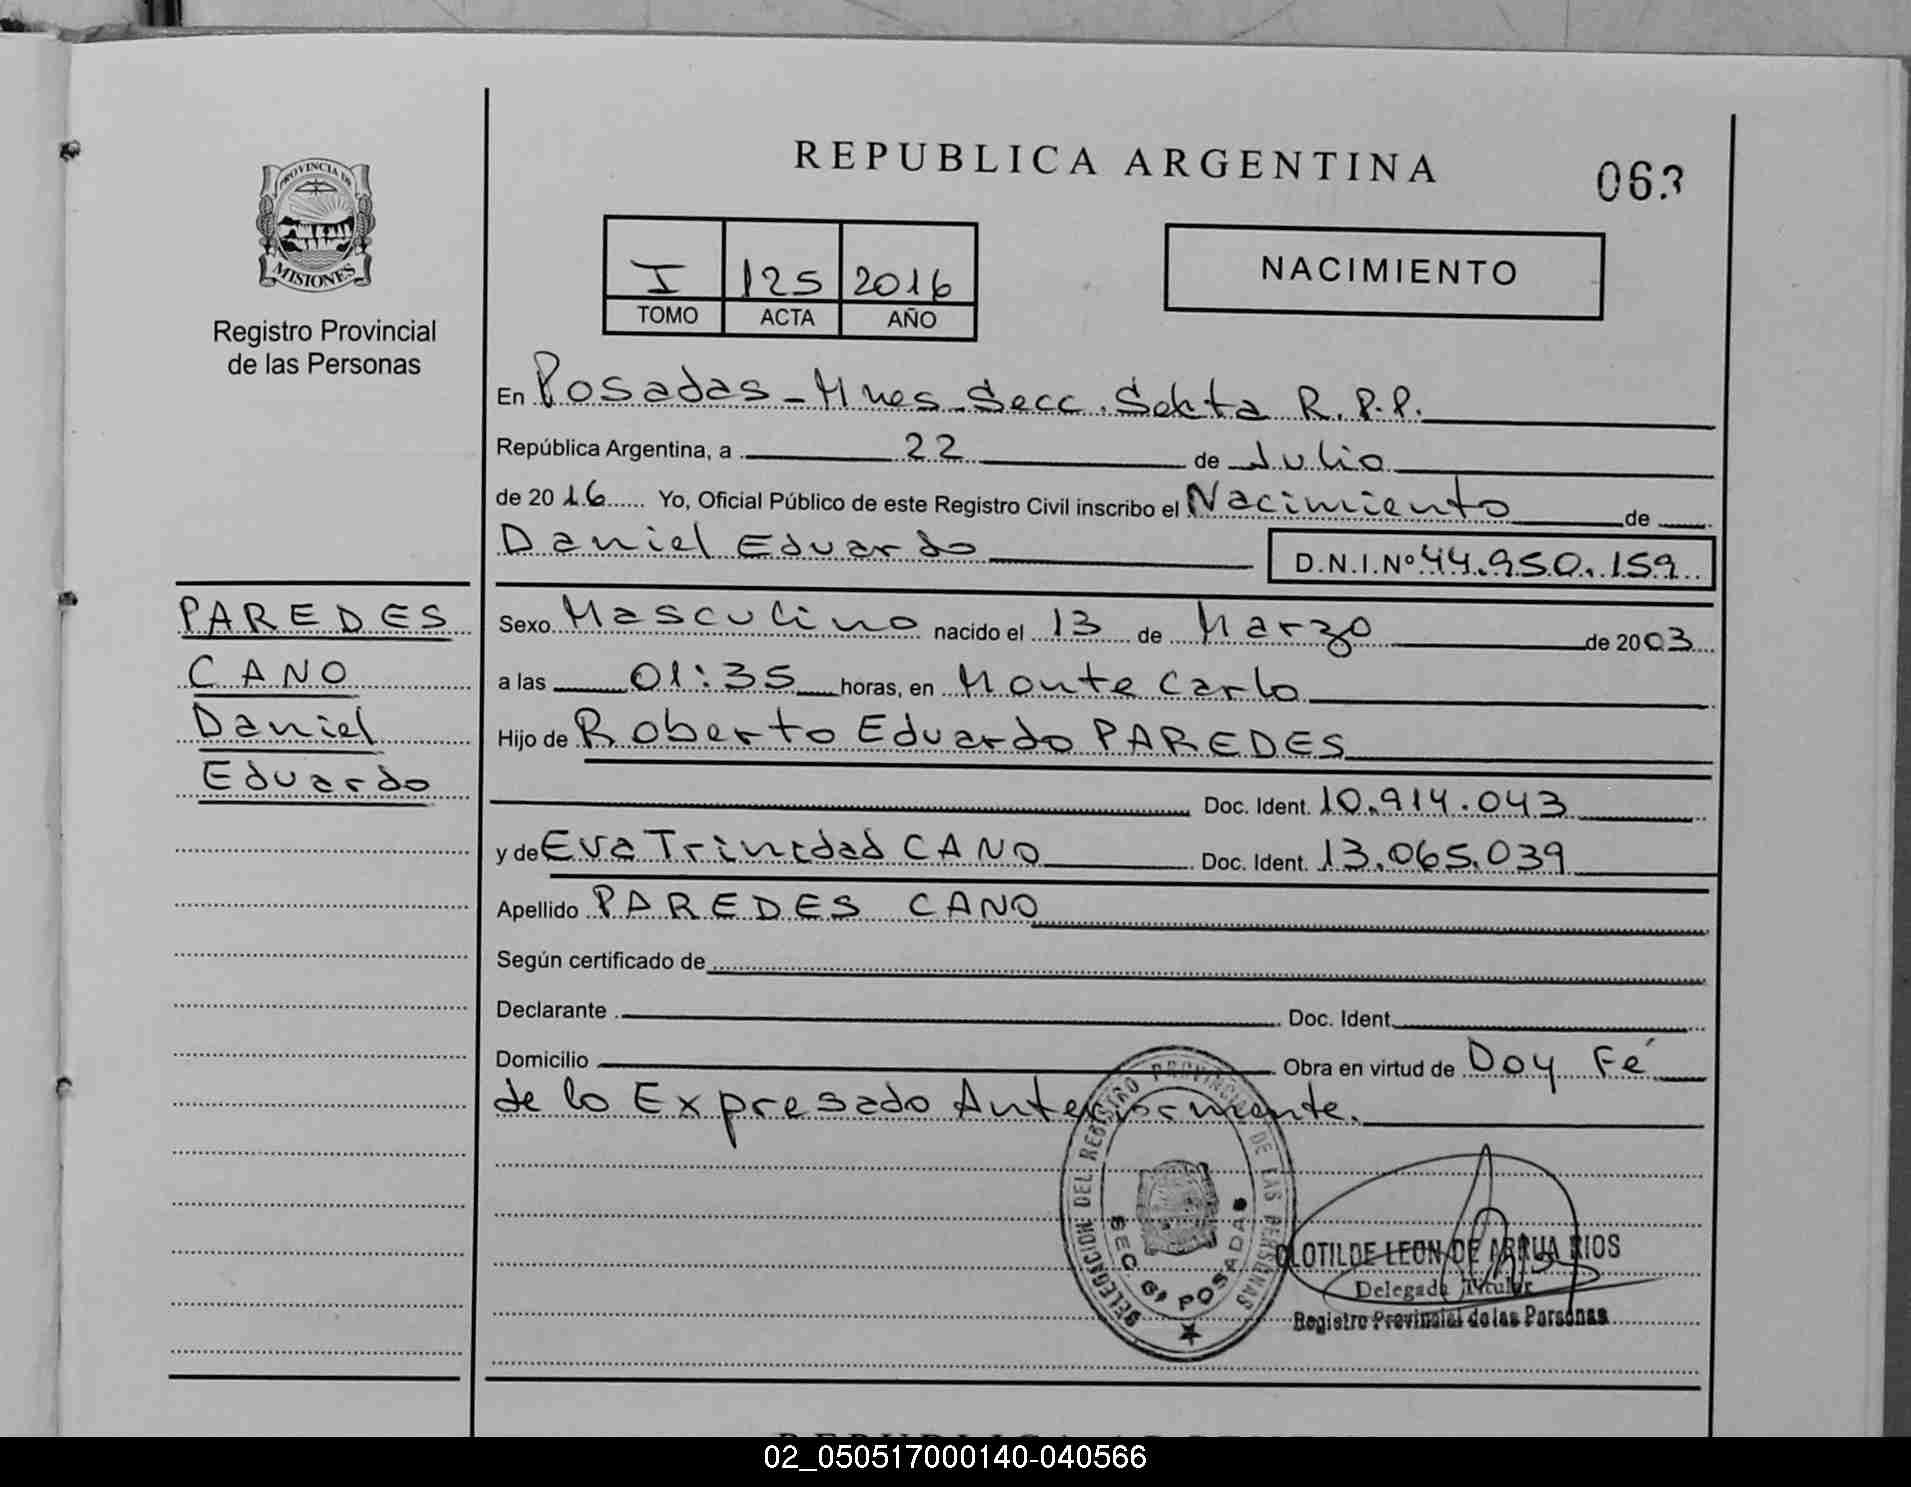 REPUBLICA ARGENTINA
063
PROVINCIA DE
MISIONES
Registro Provincial
de las Personas
I 125 2016
TOMO ACTA AÑO
NACIMIENTO
En Posadas - Mnes. Secc. Sexta R.P.P.
República Argentina, a 22 de Julio
de 2016 Yo, Oficial Público de este Registro Civil inscribo el Nacimiento de
Daniel Eduardo D.N.I.Nº 44.950.159
PAREDES
CANO
Daniel
Eduardo
Sexo Masculino nacido el 13 de Marzo de 2003
a las 01:35 horas, en Monte Carlo
Hijo de Roberto Eduardo PAREDES
Doc. Ident. 10.914.043
y de Eva Trinidad CANO Doc. Ident. 13.065.039
Apellido PAREDES CANO
Según certificado de
Declarante Doc. Ident.
Domicilio Obra en virtud de Doy Fé
de lo Expresado Anteriormente.
DELEGACION DEL REGISTRO PROVINCIAL DE LAS PERSONAS
SEC 6ª POSADAS
CLOTILDE LEON DE ARRUA RIOS
Delegada Titular
Registro Provincial de las Personas
02_050517000140-040566